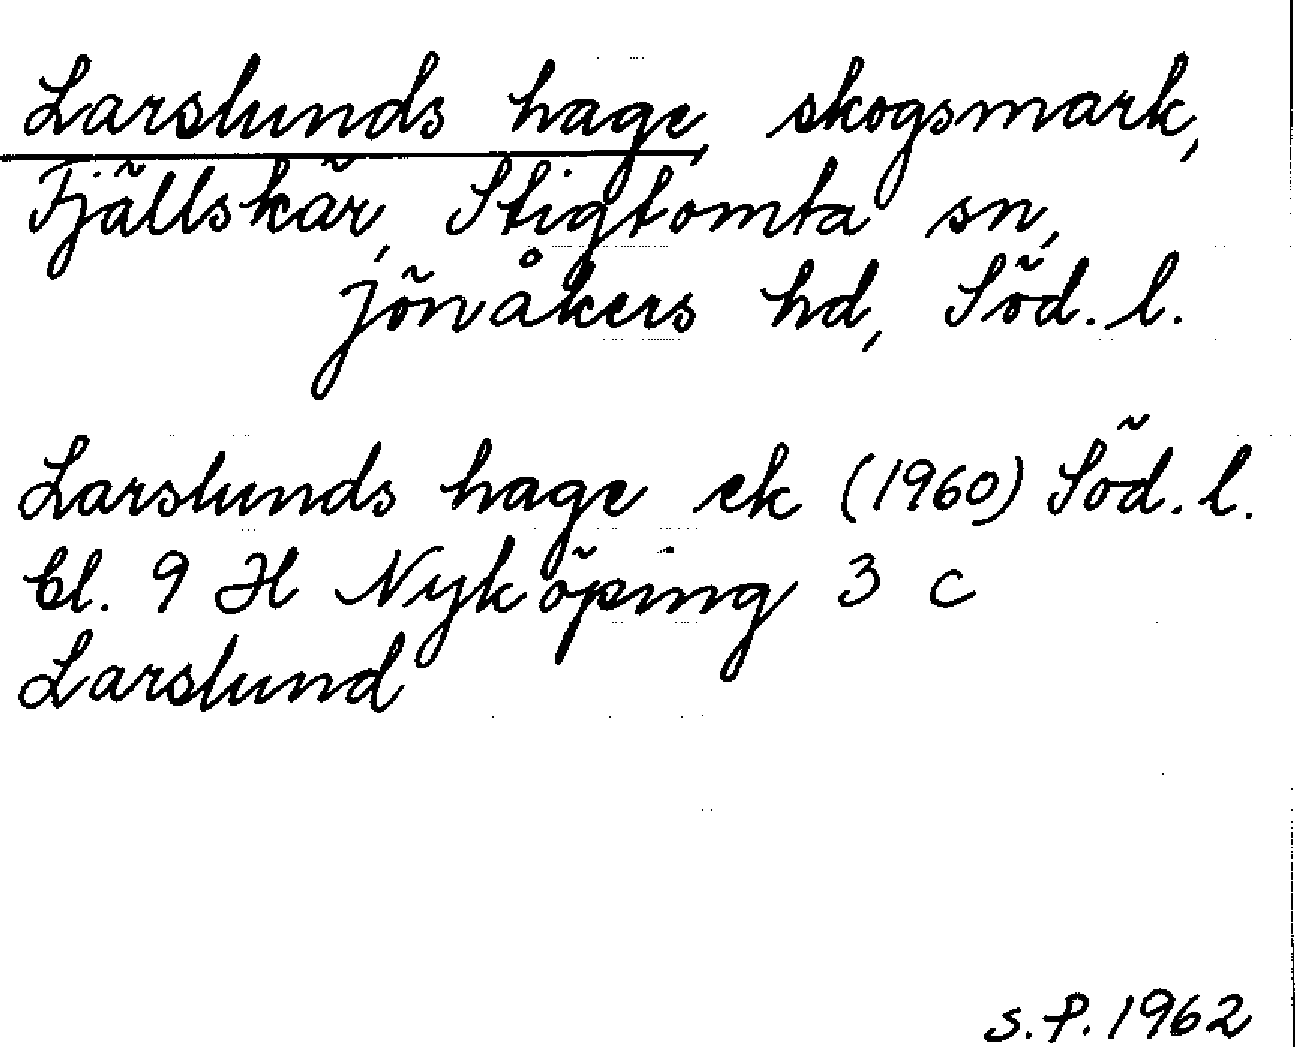 Larslunds hage, skogsmark,
Fjällskär, Stigtomta sn,
Jönåkers hd, Söd. l.
Larslunds hage ek (1960) Söd. l.
bl. 9 H Nyköping 3 c
Larslund
S.P. 1962